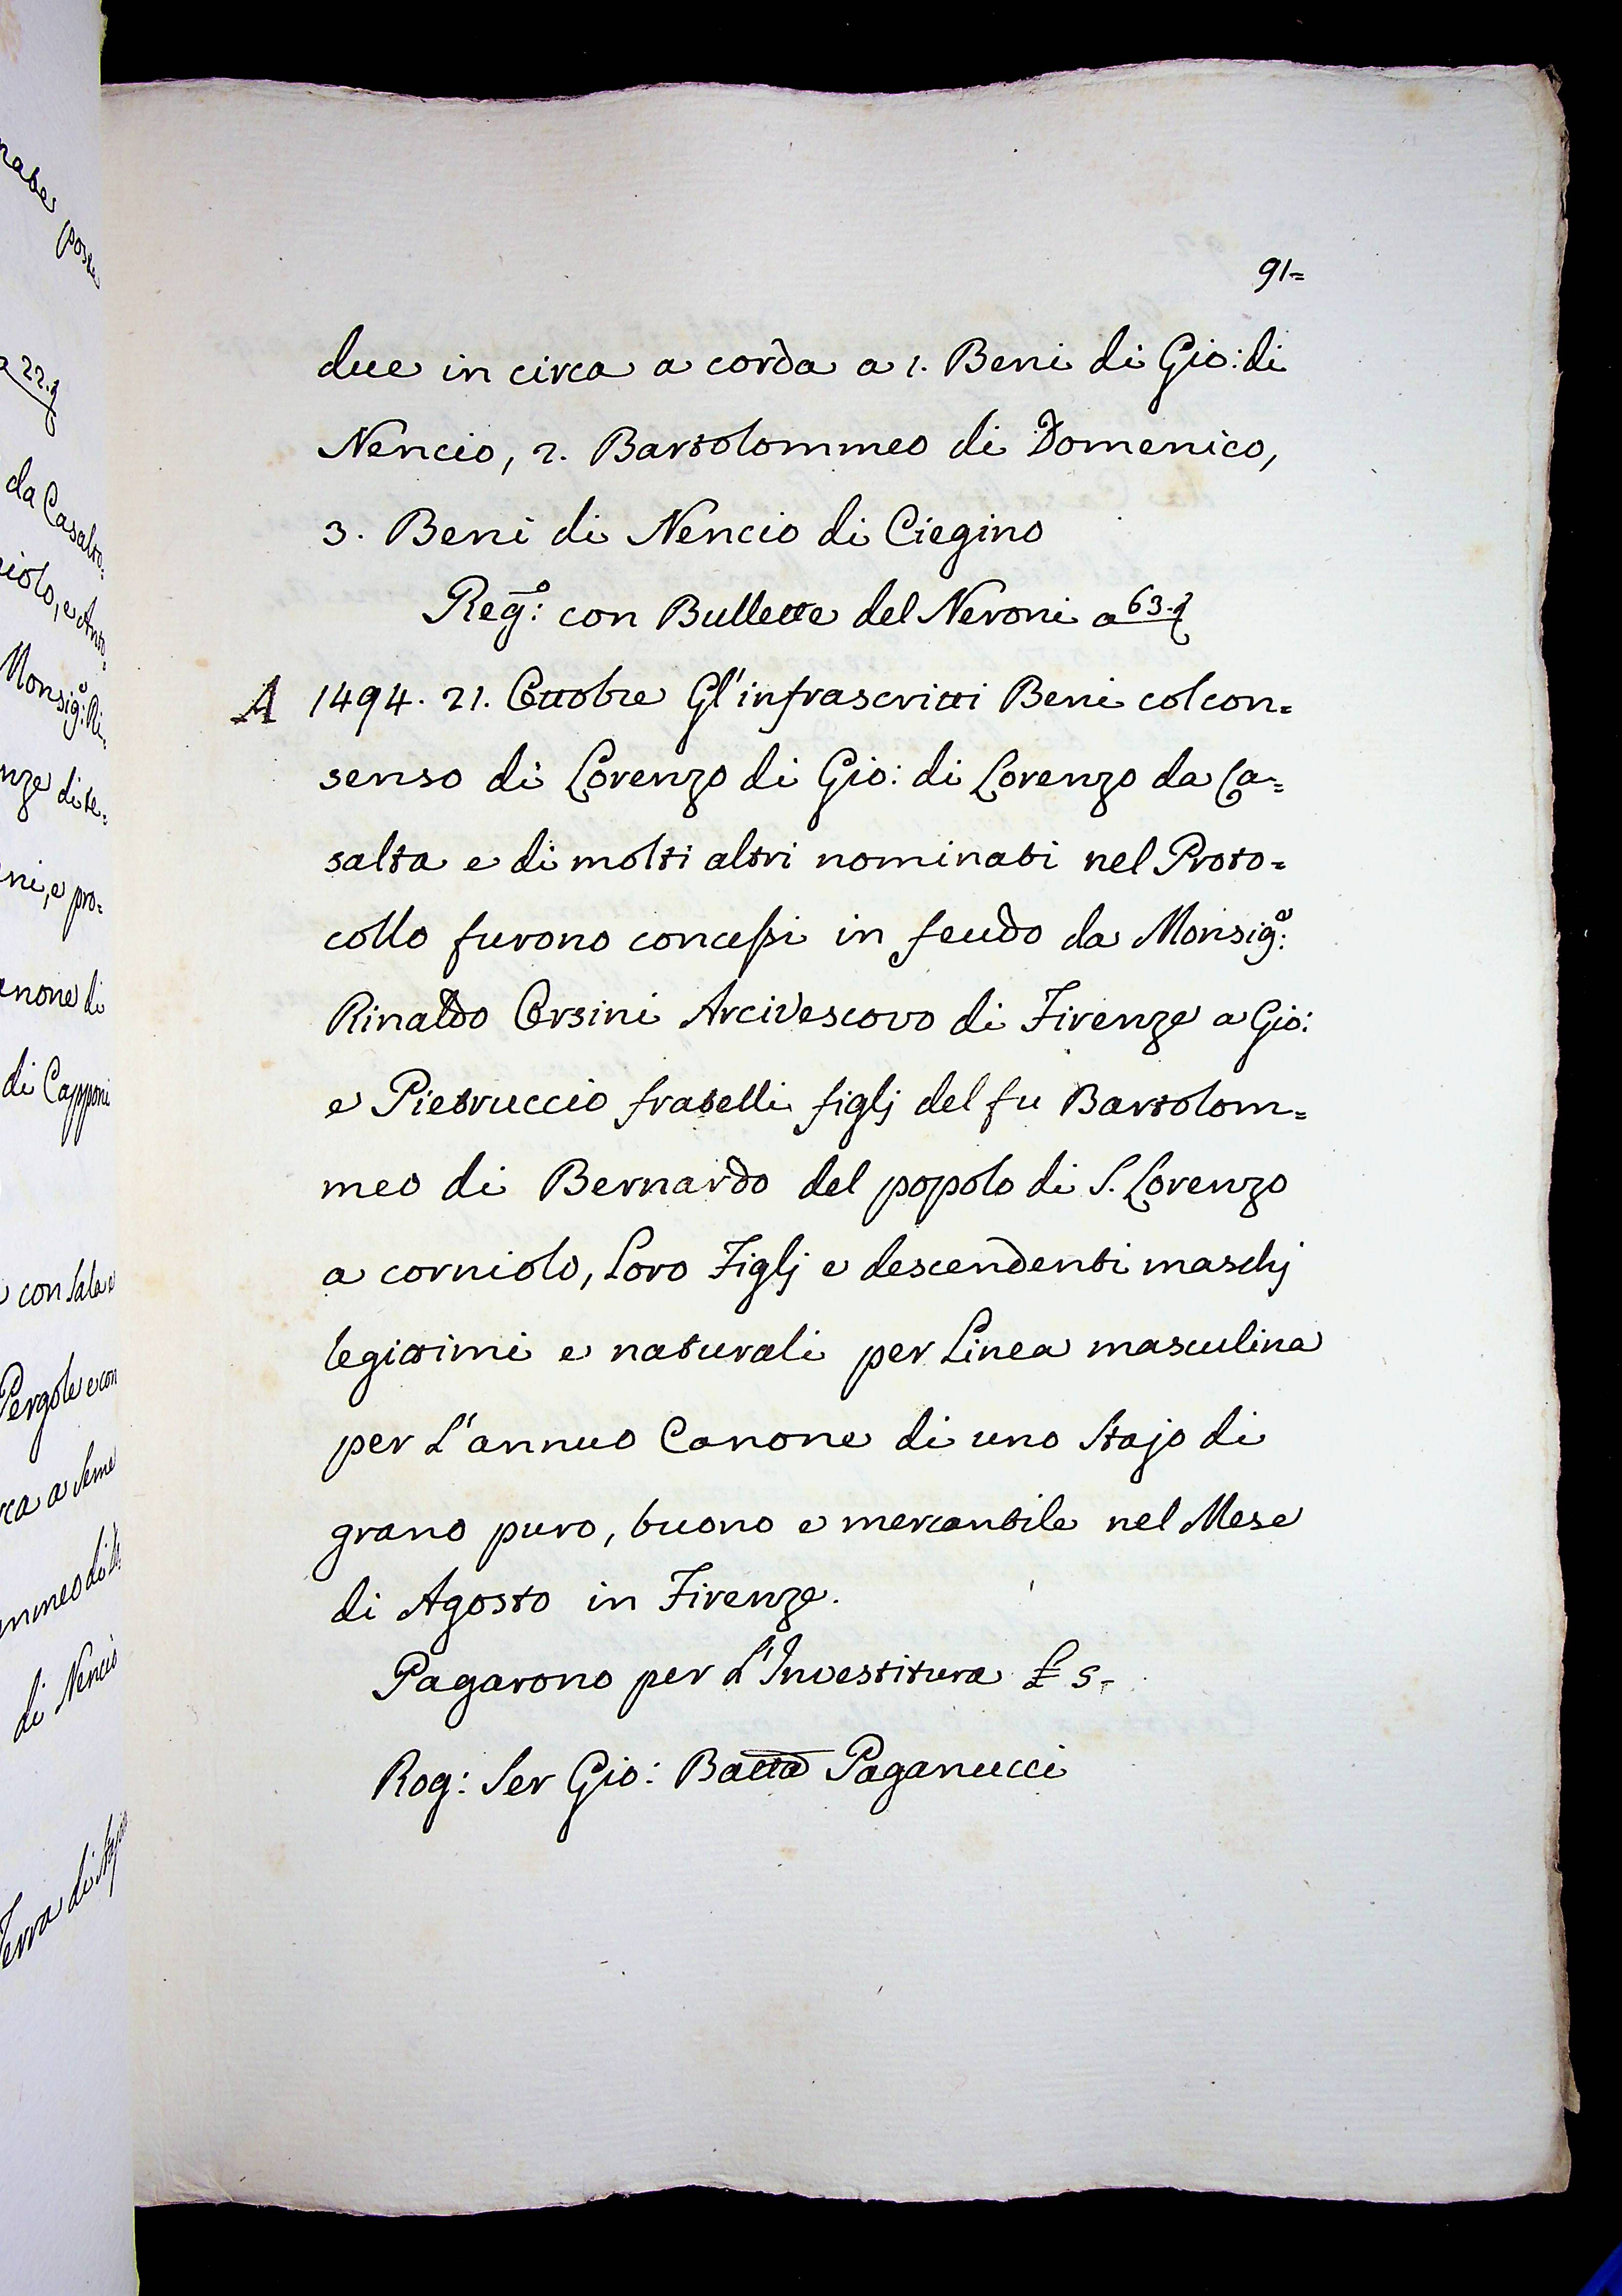 91=
due in circa a corda a 1. Beni di Gio: di
Nencio, 2. Bartolommeo di Domenico,
3. Beni di Nencio di Ciegino
Reg.º: con Bullette del Neroni a 63.
A 1494. 21. Ottobre Gl'infrascritti Beni col con=
senso di Lorenzo di Gio: di Lorenzo da Ca=
salta e di molti altri nominati nel Proto=
collo furono concessi in feudo da Monsig.e:
Rinaldo Orsini Arcivescovo di Firenze a Gio:
e Pietruccio fratelli figlj del fu Bartolom=
meo di Bernardo del popolo di S. Lorenzo
a corniolo, Loro Figlj e descendenti maschj
legittimi e naturali per Linea masculina
per L'annuo Canone di uno Stajo di
grano puro, buono e mercantile nel Mese
di Agosto in Firenze.
Pagarono per L'Investitura £ 5-
Rog: Ser Gio: Batta Paganucci
da Casalto=
iolo, e Anto=
Monsig: Ri=
nze di te=
ni, e pro=
none di
di Capponi
con Sala e
Pergole e con
di Nencio
Terra di